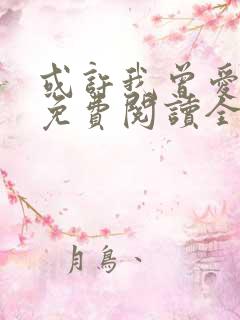 或許我曾愛
免費閱讀全
月鳥、